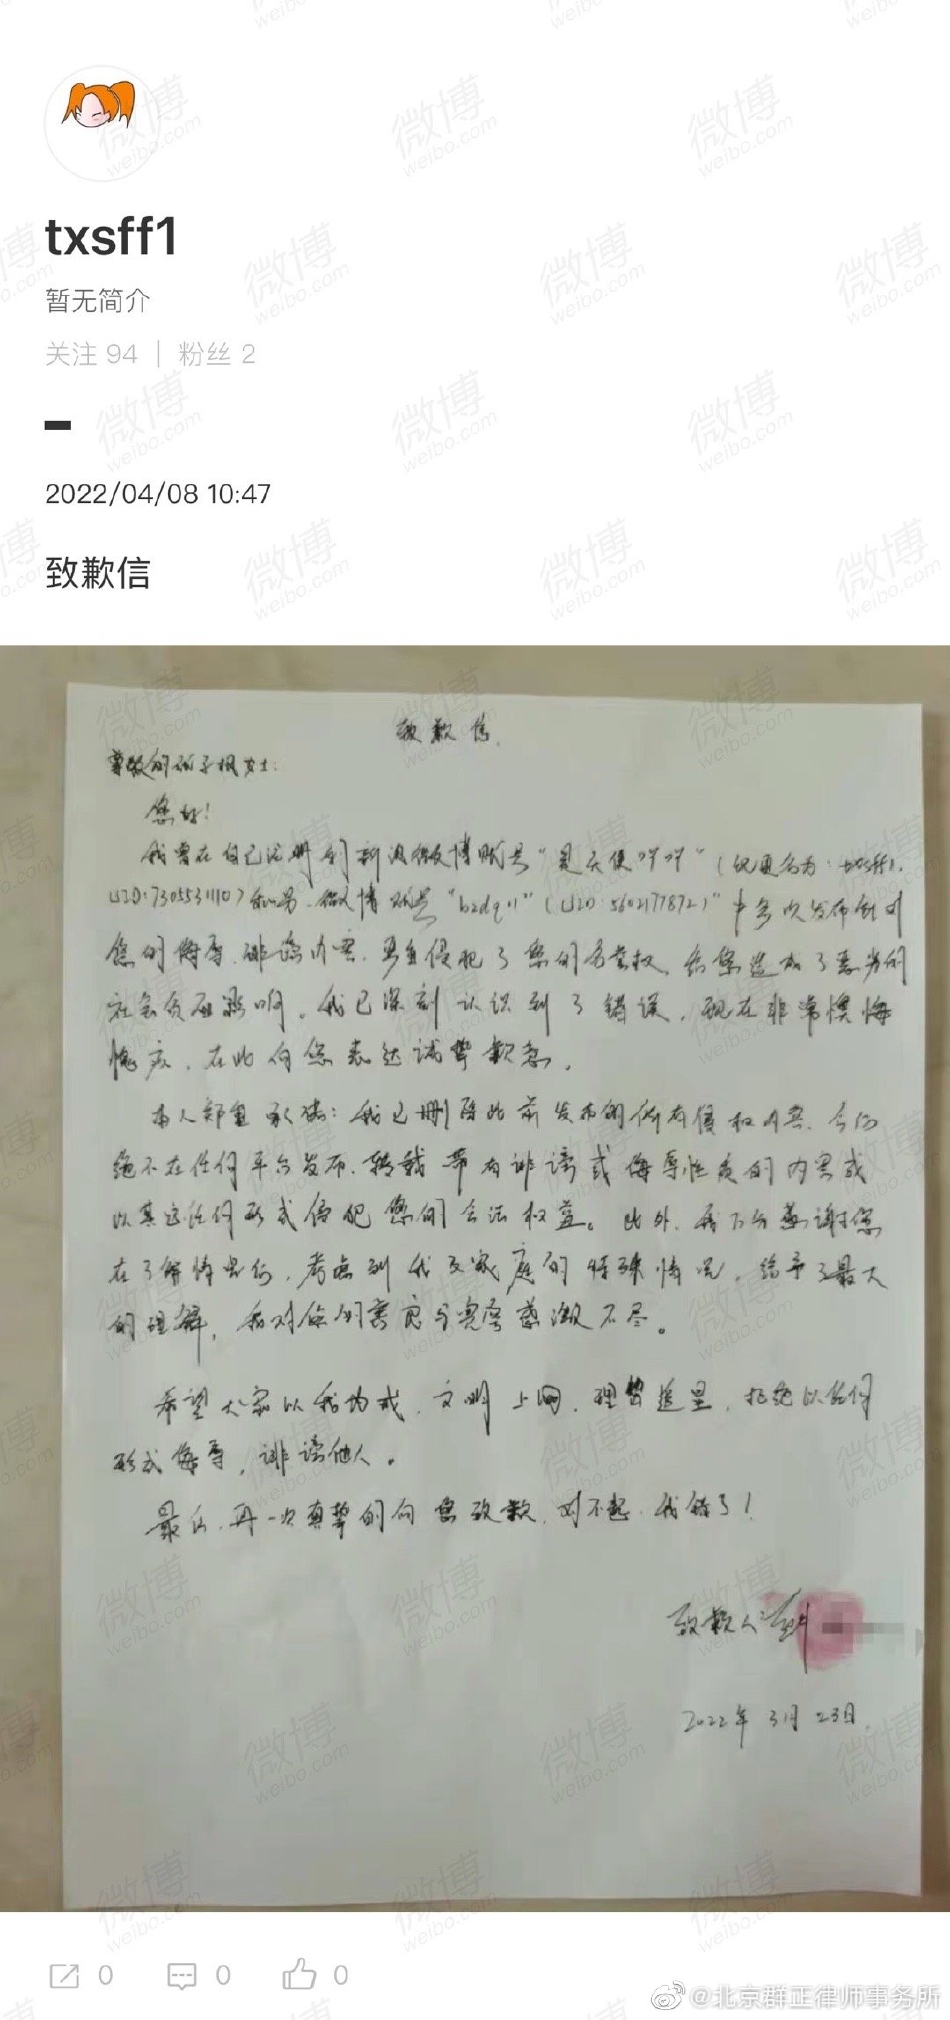 txsff1
暂无简介
关注 94 | 粉丝 2
-
2022/04/08 10:47
致歉信
致歉信
尊敬的张子枫女士:
您好!
我曾在自己注册的新浪微博账号"是天使吖吖"(现更名为:txsff1,
UID:7305531110)和另一微博账号"bzdq11"(UID:5602177872)"中多次发布针对
您的侮辱、诽谤内容,严重侵犯了您的名誉权,给您造成了恶劣的
社会负面影响。我已深刻认识到了错误,现在非常懊悔
愧疚,在此向您表达诚挚歉意。
本人郑重承诺:我已删除此前发布的所有侵权内容,今后
绝不在任何平台发布、转载带有诽谤或侮辱性质的内容或
以其他任何形式侵犯您的合法权益。此外,我万分感谢您
在了解情况后,考虑到我及家庭的特殊情况,给予了最大
的理解,我对您的善良与宽容感激不尽。
希望大家以我为戒,文明上网,理智追星,拒绝以任何
形式侮辱,诽谤他人。
最后,再一次真挚的向您致歉,对不起,我错了!
致歉人:
2022年3月23日
0 0 0
@北京群正律师事务所
微博
weibo.com